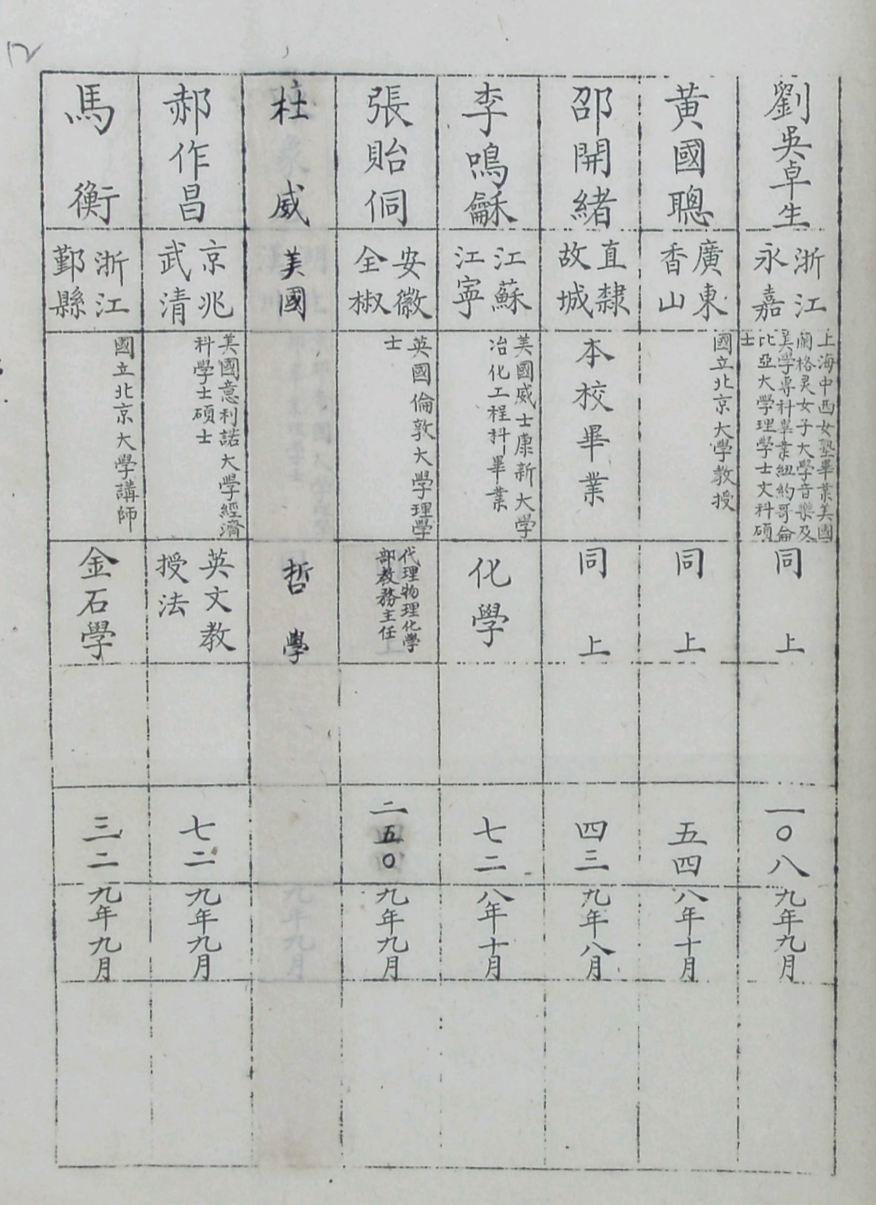 劉吳卓生
浙江
永嘉
上海中西女塾畢業美國
蘭格灵女子大學音樂及
美學專科畢業紐約哥倫
比亞大學理學士文科碩
士
同上
一〇八
九年九月
黃國聰
廣東
香山
國立北京大學教授
同上
五四
八年十月
邵開緒
直隸
故城
本校畢業
同上
四三
九年八月
李鳴龢
江蘇
江寧
美國威士康新大學
冶化工程科畢業
化學
七二
八年十月
張貽侗
安徽
全椒
英國倫敦大學理學
士
代理物理化學
部教務主任
二五〇
九年九月
杜威
美國
哲學
九年九月
郝作昌
京兆
武清
美國意利諾大學經濟
科學士碩士
英文教
授法
七二
九年九月
馬衡
浙江
鄞縣
國立北京大學講師
金石學
三二
九年九月